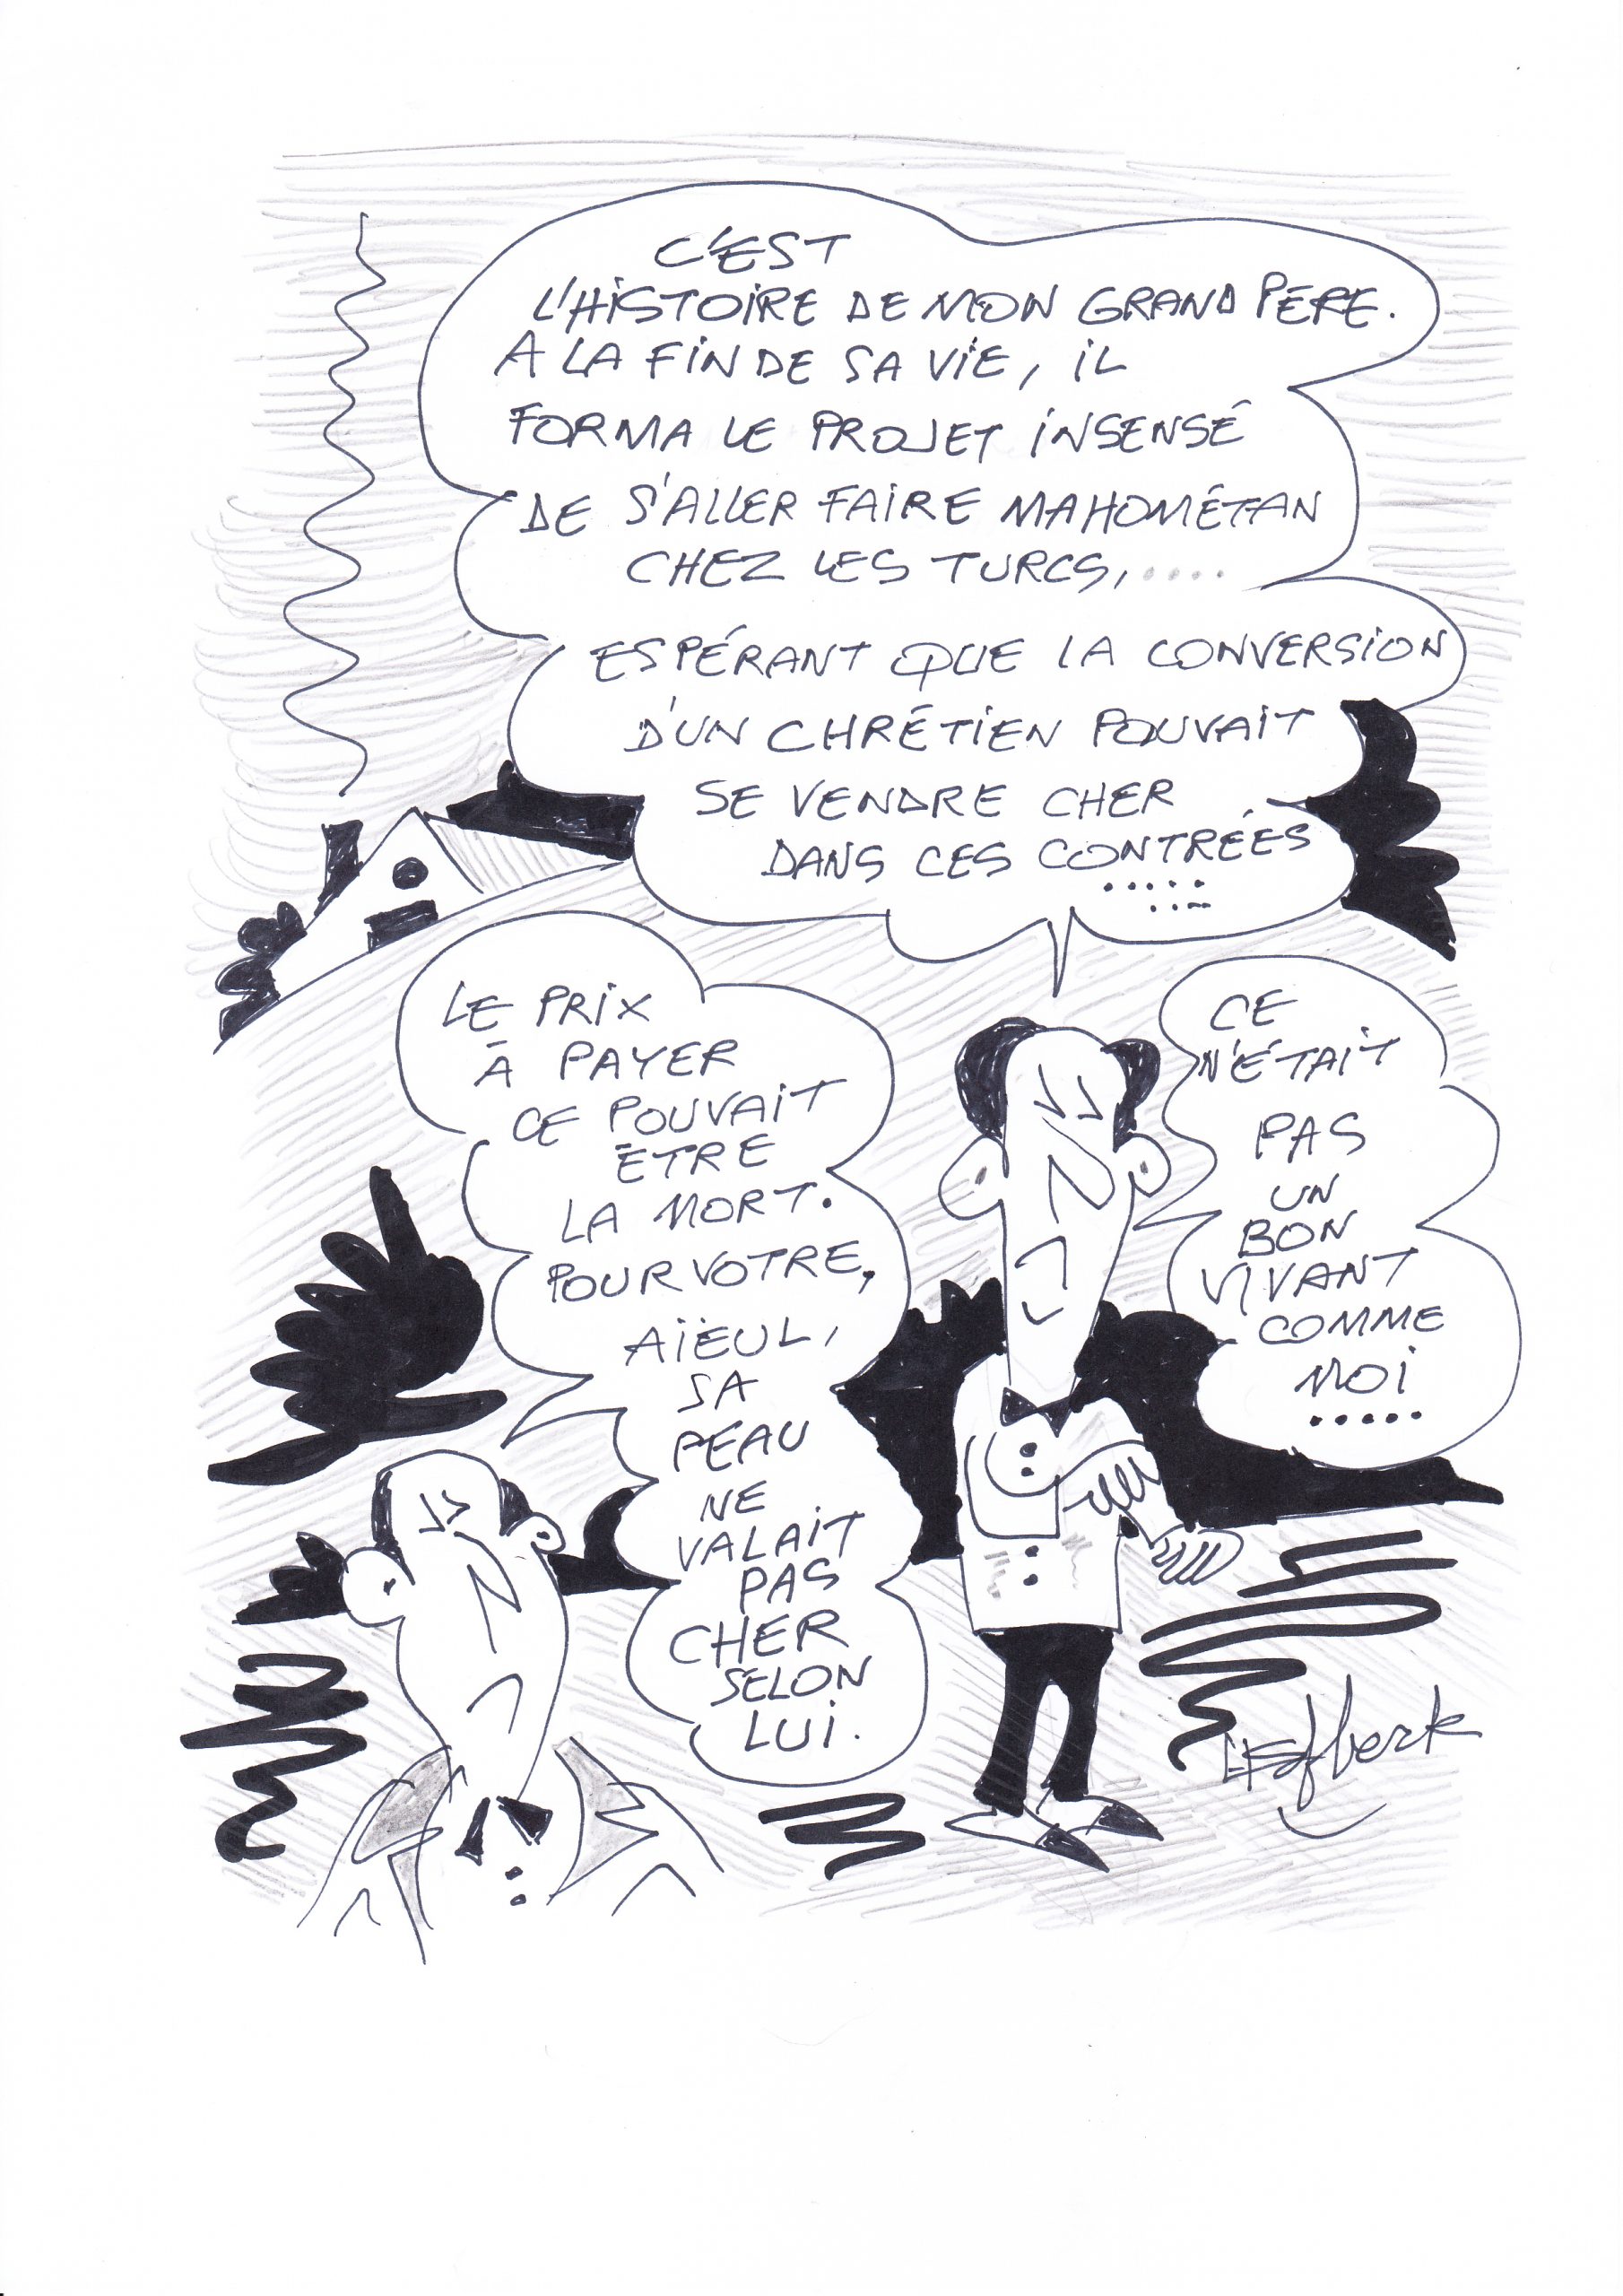 C'EST
L'HISTOIRE DE MON GRAND PÈRE.
A LA FIN DE SA VIE, IL
FORMA LE PROJET INSENSÉ
DE S'ALLER FAIRE MAHOMÉTAN
CHEZ LES TURCS, ....
ESPÉRANT QUE LA CONVERSION
D'UN CHRÉTIEN POUVAIT
SE VENDRE CHER
DANS CES CONTRÉES
.....
LE PRIX
À PAYER
CE POUVAIT
ÊTRE
LA MORT.
POUR VOTRE,
AÏEUL,
SA
PEAU
NE
VALAIT
PAS
CHER
SELON
LUI.
CE
N'ÉTAIT
PAS
UN
BON
VIVANT
COMME
MOI
.....